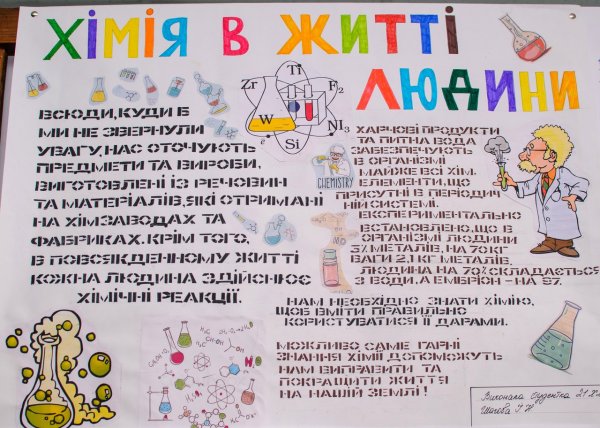 ХІМІЯ В ЖИТТІ
ЛЮДИНИ
ВСЮДИ, КУДИ Б
МИ НЕ ЗВЕРНУЛИ
УВАГУ, НАС ОТОЧУЮТЬ
ПРЕДМЕТИ ТА ВИРОБИ,
ВИГОТОВЛЕНІ ІЗ РЕЧОВИН
ТА МАТЕРІАЛІВ, ЯКІ ОТРИМАНІ
НА ХІМЗАВОДАХ ТА
ФАБРИКАХ. КРІМ ТОГО,
В ПОВСЯКДЕННОМУ ЖИТТІ
КОЖНА ЛЮДИНА ЗДІЙСНЮЄ
ХІМІЧНІ РЕАКЦІЇ.
Ti
Zr
F2
W
NI3
e
Si
CHEMISTRY
ХАРЧОВІ ПРОДУКТИ
ТА ПИТНА ВОДА
ЗАБЕЗПЕЧУЮТЬ
В ОРГАНІЗМІ
МАЙЖЕ ВСІ ХІМ.
ЕЛЕМЕНТИ, ЩО
ПРИСУТНІ В ПЕРІОДИЧ
НІЙ СИСТЕМІ.
ЕКСПЕРИМЕНТАЛЬНО
ВСТАНОВЛЕНО, ЩО В
ОРГАНІЗМІ ЛЮДИНИ
3% МЕТАЛІВ, НА 70 КГ
ВАГИ 2,1 КГ МЕТАЛІВ.
ЛЮДИНА НА 70% СКЛАДАЄТЬСЯ
З ВОДИ, А ЕМБРІОН - НА 97.
НАМ НЕОБХІДНО ЗНАТИ ХІМІЮ,
ЩОБ ВМІТИ ПРАВИЛЬНО
КОРИСТУВАТИСЯ ЇЇ ДАРАМИ.
МОЖЛИВО, САМЕ ГАРНІ
ЗНАННЯ ХІМІЇ ДОПОМОЖУТЬ
НАМ ВИПРАВИТИ ТА
ПОКРАЩИТИ ЖИТТЯ
НА НАШІЙ ЗЕМЛІ!
Виконала студентка